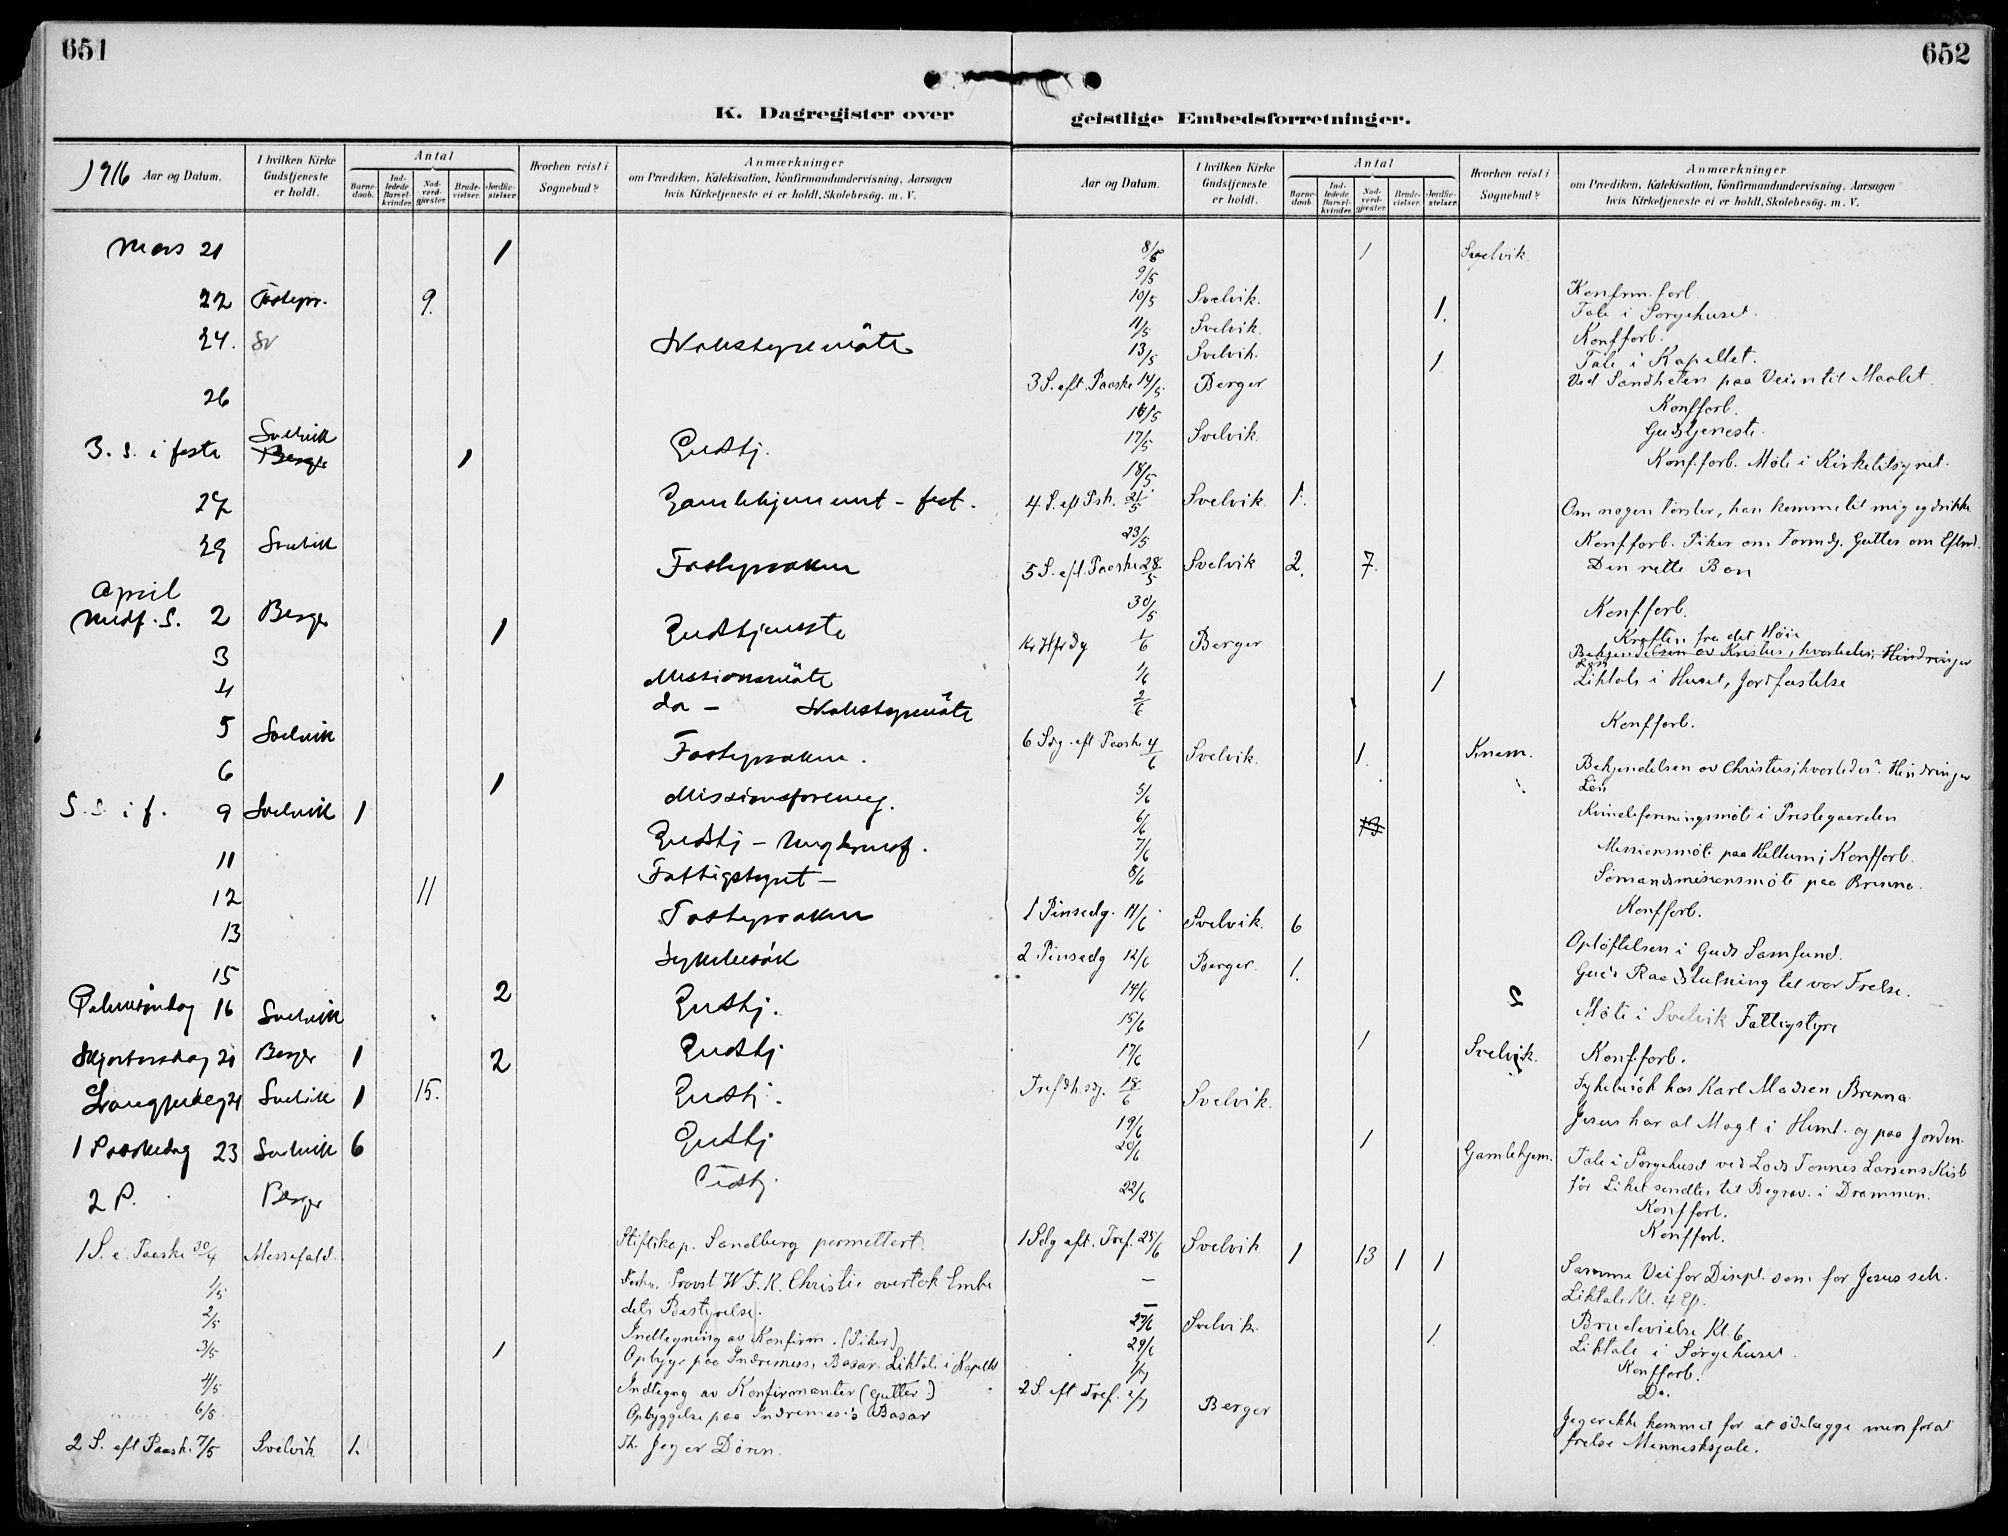 651
652
K. Dagregister over
geistlige Embedsforretninger.
1916 Aar og Datum.
I hvilken Kirke Gudstjeneste er holdt.
Antal
Barnedaab.
Indledede Barselkvinder.
Nadverdgjæster.
Brudevielser.
Jordfæstelser.
Hvorhen reist i Sognebud?
Anmærkninger
om Prædiken, Katekisation, Konfirmandundervisning, Aarsagen
hvis Kirketjeneste ei er holdt, Skolebesög. m. V.
Mars 21 1
22 9.
24. Sv
26
3. S. i faste Svelvik Berger 1 Gudstj.
27 Gamlehjemmet - fest.
29 Svelvik
April
Midf. S. 2 Berger 1 Gudstjeneste
3 Missionsmöte
4 do -
5 Svelvik
6 1 Missionsforening.
5. S. i f. 9 Svelvik 1
11 Fattigstyret -
12 11
13 Sykebesök
15 2
Palmesöndag 16 Svelvik Gudstj.
Skjærtorsdag 20 Berger 1 2 Gudstj
Langfredag 21 Svelvik 1 15. Gudstj.
1 Paaskedag 23 Svelvik 6 Gudstj
2 P. Berger Gudstj.
1 S. e. Paaske 30/4 Messefald. Stiftskap. Sandberg permittert.
1/5 Provst W. F. K. Christie overtok Embe
2/5 dets Bestyrelse.
Indtegning av Konfirm. (Piker)
3/5 1 Opbygg. paa Indremiss. Basar. Liktale i Kapellet
4/5 Indtegng av Konfirmanter (Gutter)
6/5 Opbyggelse paa Indremis:s Basar
2 S. eft Paaske 7/5 Svelvik 1. Th. Jeg er Dören.
Aar og Datum.
I hvilken Kirke Gudstjeneste er holdt.
Antal
Barnedaab.
Indledede Barselkvinder.
Nadverdgjæster.
Brudevielser.
Jordfæstelser.
Hvorhen reist i Sognebud?
Anmærkninger
om Prædiken, Katekisation, Konfirmandundervisning, Aarsagen
hvis Kirketjeneste ei er holdt, Skolebesög. m. V.
8/5 1 Svelvik.
9/5 Konfirm. forb.
10/5 Svelvik. 1. Tale i Sørgehuset.
11/5 Svelvik. Konfforb.
13/5 Svelvik. 1 Tale i Kapellet.
3 S. eft. Paaske 14/5 Berger Ved Sandheten paa Veien til Maalet.
16/5 Konfforb.
17/5 Svelvik. Gudstjeneste.
18/5 Konf.forb. Møte i Kirketilsynet.
4 S. eft Psk. 21/5 Svelvik 1. Om nogen törster, han komme til mig og drikke
23/5 Konfforb. Piker om Formdg. Gutter om Eftmd.
5 S. eft. Paaske 28/5 Svelvik 2. 7. Den rette Bøn
30/5 Konf.forb.
Kr Hfrdg 1/6 Berger Kraften fra det Høie
Bekjendelsen av Kristus, hvorledes, Hindringer
Løn
1/6 1 Liktale i Huset, Jordfæstelse
2/6 Konf.forb.
6 Sdg. eft Paaske 4/6 Svelvik. 1. Knem. Bekjendelsen av Christus; hvorledes? Hindringer
Løn
5/6 Kvindeforeningsmöte i Prestegaarden
6/6 Missionsmöte paa Hellum; Konfforb.
7/6 Sömandsmissionsmöte paa Brenna.
8/6 Konfforb.
1 Pinsedg. 11/6 Svelvik. 6 Opløftelsen i Guds Samfund.
2 Pinsedg 12/6 Berger. 1. Guds Raadslutning til vor Frelse.
14/6 2 Møte i Svelvik Fattigstyre
15/6 1 Svelvik. Konf.forb.
17/6 Sykebesök hos Karl Madsen Brenna.
Trefdh.sdg. 18/6 Svelvik. Jesus har al Magt i Himl. og paa Jorden.
19/6 1 Gamlehjem. Tale i Sørgehuset ved Lods Tønnes Larsens Kiste
20/6 før Liket sendtes til Begrav. i Drammen.
22/6 Konfforb.
Konfforb.
1 Sdg eft. Tref. 25/6 Svelvik 1 13 1 1 Samme Vei for Discpl. som for Jesus selv.
Liktale Kl. 4 Ef.
Brudevielse Kl. 6.
27/6 Svelvik. 1. Liktale i Sørgehuset.
29/6 Konfforb.
1/7 Do.
2 S. eft Tref. 2/7 Berger Jeg er ikke kommet for at ödelægge men for at
frelse Menneskesjæle.